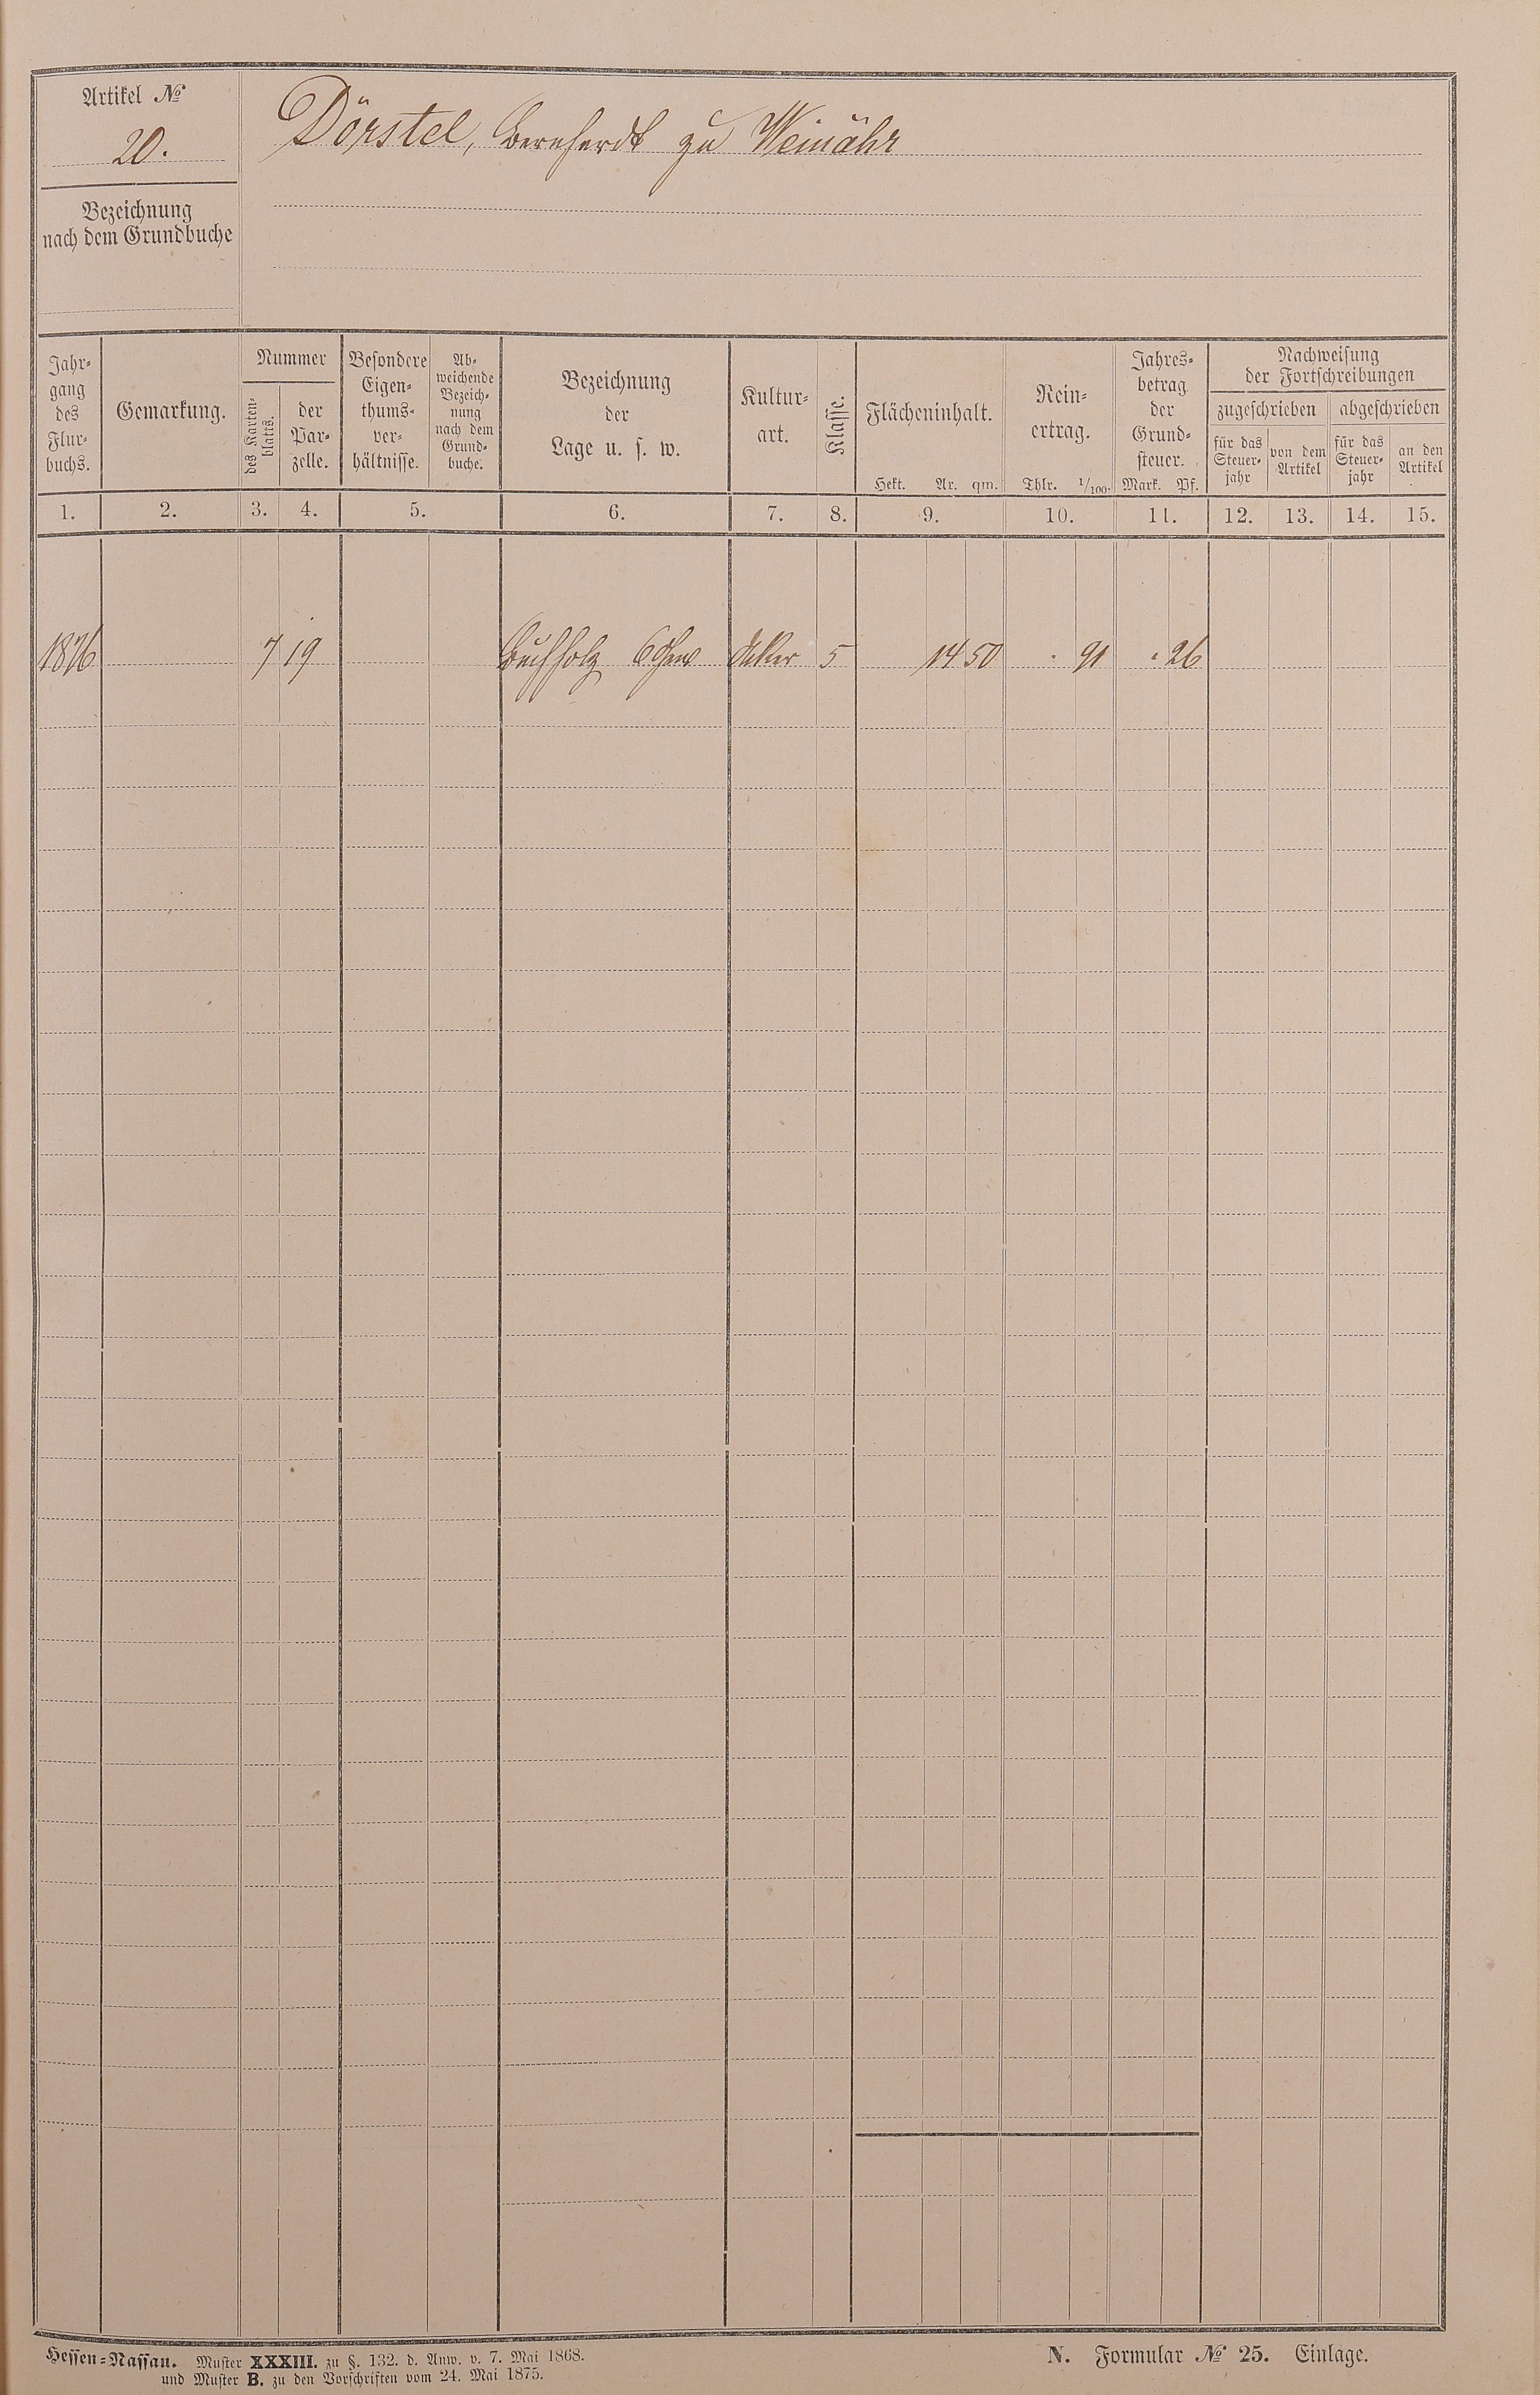 Artikel №
20.
Dörstel, Bernhardt zu Weinähr
Bezeichnung
nach dem Grundbuche
Jahr-
gang
des
Flur-
buchs.
Gemarkung.
Nummer
des Karten-
blatts.
der
Par-
zelle.
Besondere
Eigen-
thums-
ver-
hältnisse.
Ab-
weichende
Bezeich-
nung
nach dem
Grund-
buche.
Bezeichnung
der
Lage u. s. w.
Kultur-
art.
Klasse.
Flächeninhalt.
Hekt. Ar. qm.
Rein-
ertrag.
Thlr. 1/100.
Jahres-
betrag
der
Grund-
steuer.
Mark. Pf.
Nachweisung
der Fortschreibungen
zugeschrieben
abgeschrieben
für das
Steuer-
jahr
von dem
Artikel
für das
Steuer-
jahr
an den
Artikel
1. 2. 3. 4. 5. 6. 7. 8. 9. 10. 11. 12. 13. 14. 15.
1876 7 19 Buchholz Acker 5 14 50 . 91 . 26
Hessen-Nassau. Muster XXXIII. zu §. 132. d. Anw. v. 7. Mai 1868.
und Muster B. zu den Vorschriften vom 24. Mai 1875.
N. Formular № 25. Einlage.